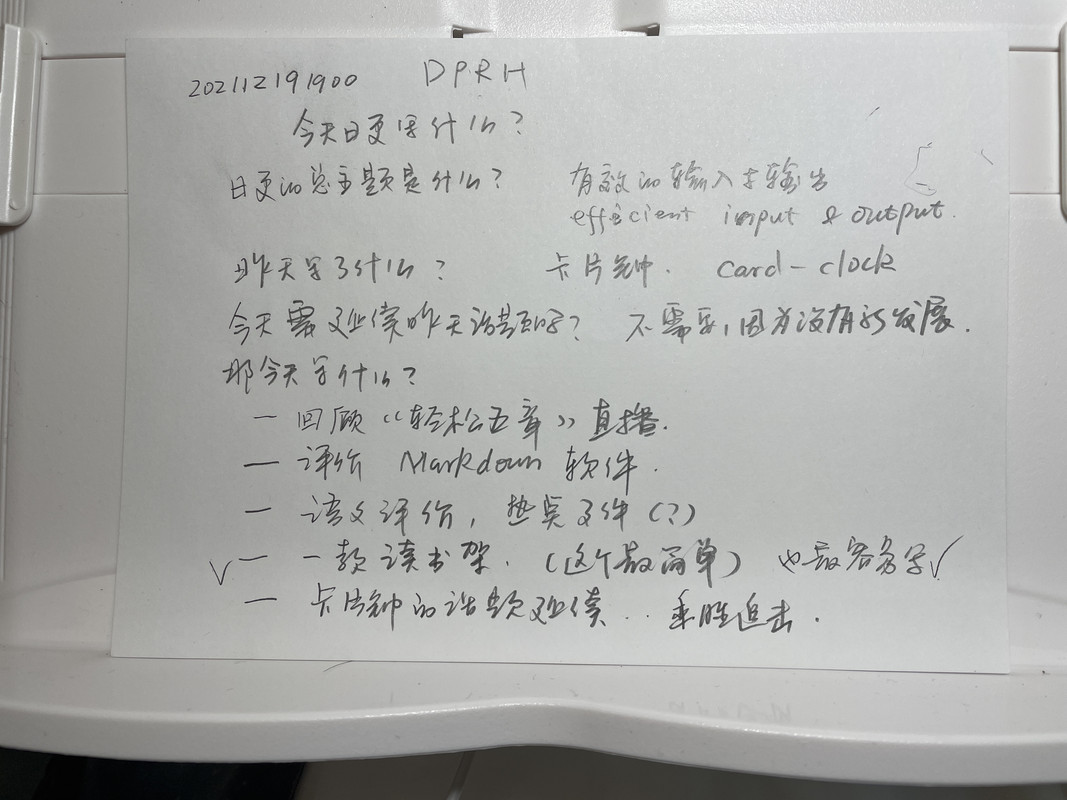 202112191900 DPRH
今天日更写什么?
日更的总主题是什么? 有效的输入与输出
efficient input & output.
昨天写了什么? 卡片钟. card-clock
今天需要延续昨天话题吗? 不需要,因为没有新发展.
那今天写什么?
— 回顾《轻松五章》直播.
— 评价 Markdown 软件.
— 语文评价, 文件(?)
√ — 一款读书架. (这个最简单) 也最容易写√
— 卡片钟的话题延续.. 乘胜追击.